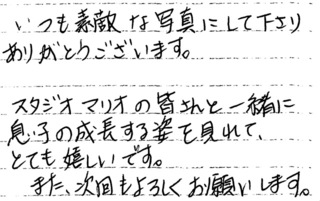 いつも素敵な写真にして下さり
ありがとうございます。
スタジオマリオの皆さんと一緒に
息子の成長する姿を見れて、
とても嬉しいです。
また、次回もよろしくお願いします。